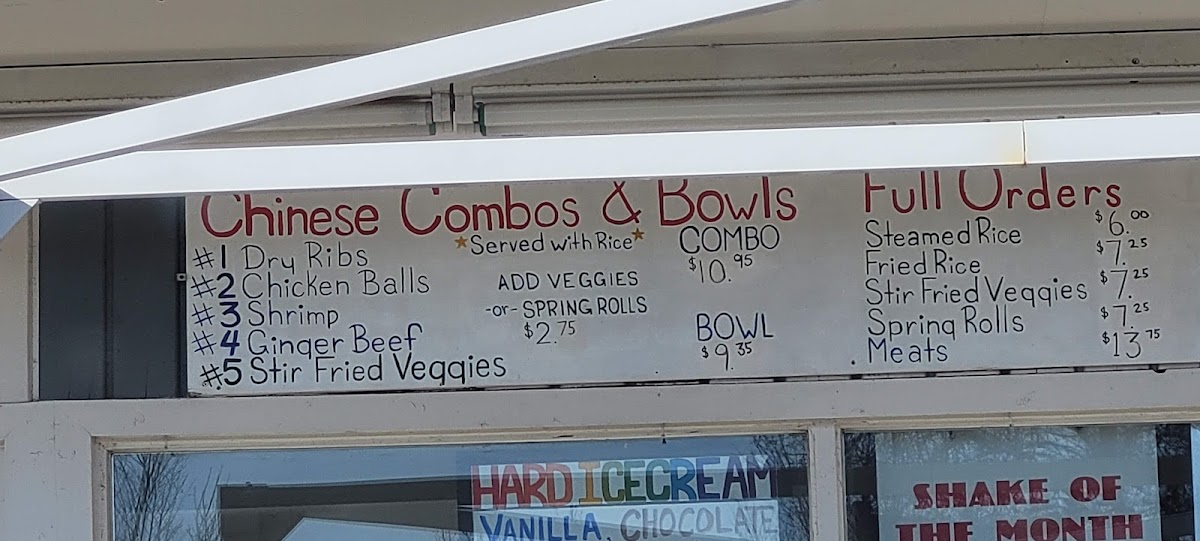 Chinese Combos & Bowls
*Served with Rice*
#1 Dry Ribs
#2 Chicken Balls
#3 Shrimp
#4 Ginger Beef
#.5 Stir Fried Veggies
ADD VEGGIES
-or- SPRING ROLLS
$2.75
COMBO
$10.95
BOWL
$9.35
Full Orders
Steamed Rice $6.00
Fried Rice $7.25
Stir Fried Veggies $7.25
Spring Rolls $7.25
Meats $13.75
HARD ICECREAM
VANILLA, CHOCOLATE
SHAKE OF
THE MONTH